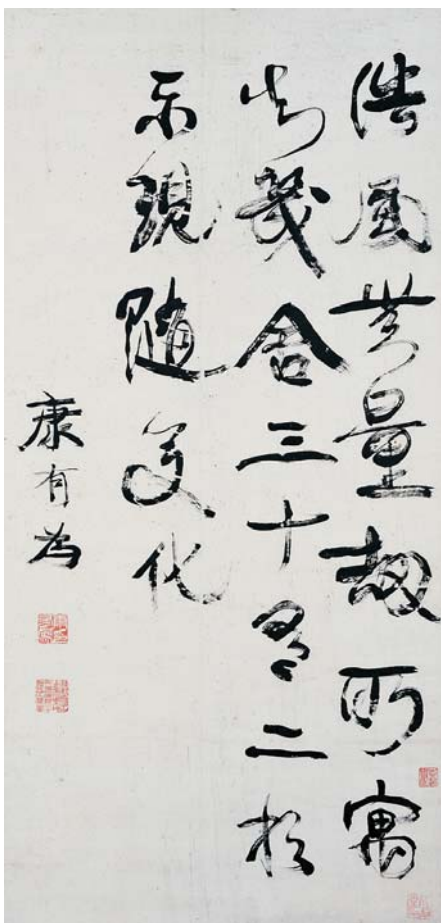 浩無量劫所寓
知幾舍三十有二相
示現隨變化
康有為